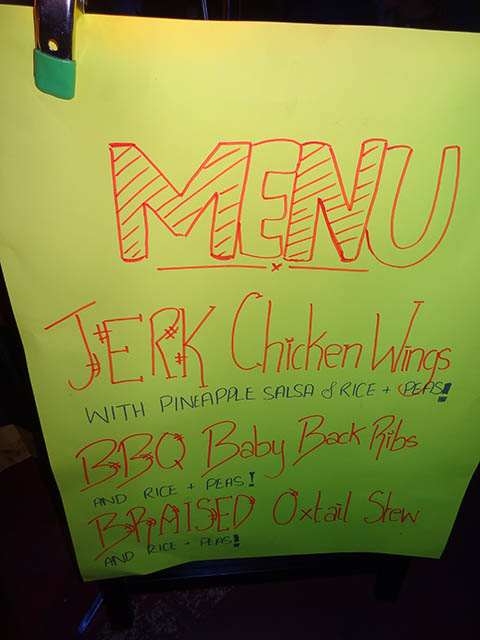 MENU
JERK Chicken Wings
WITH PINEAPPLE SALSA & RICE + PEAS!
BBQ Baby Back Ribs
AND RICE + PEAS!
BRAISED Oxtail Stew
AND RICE + PEAS!